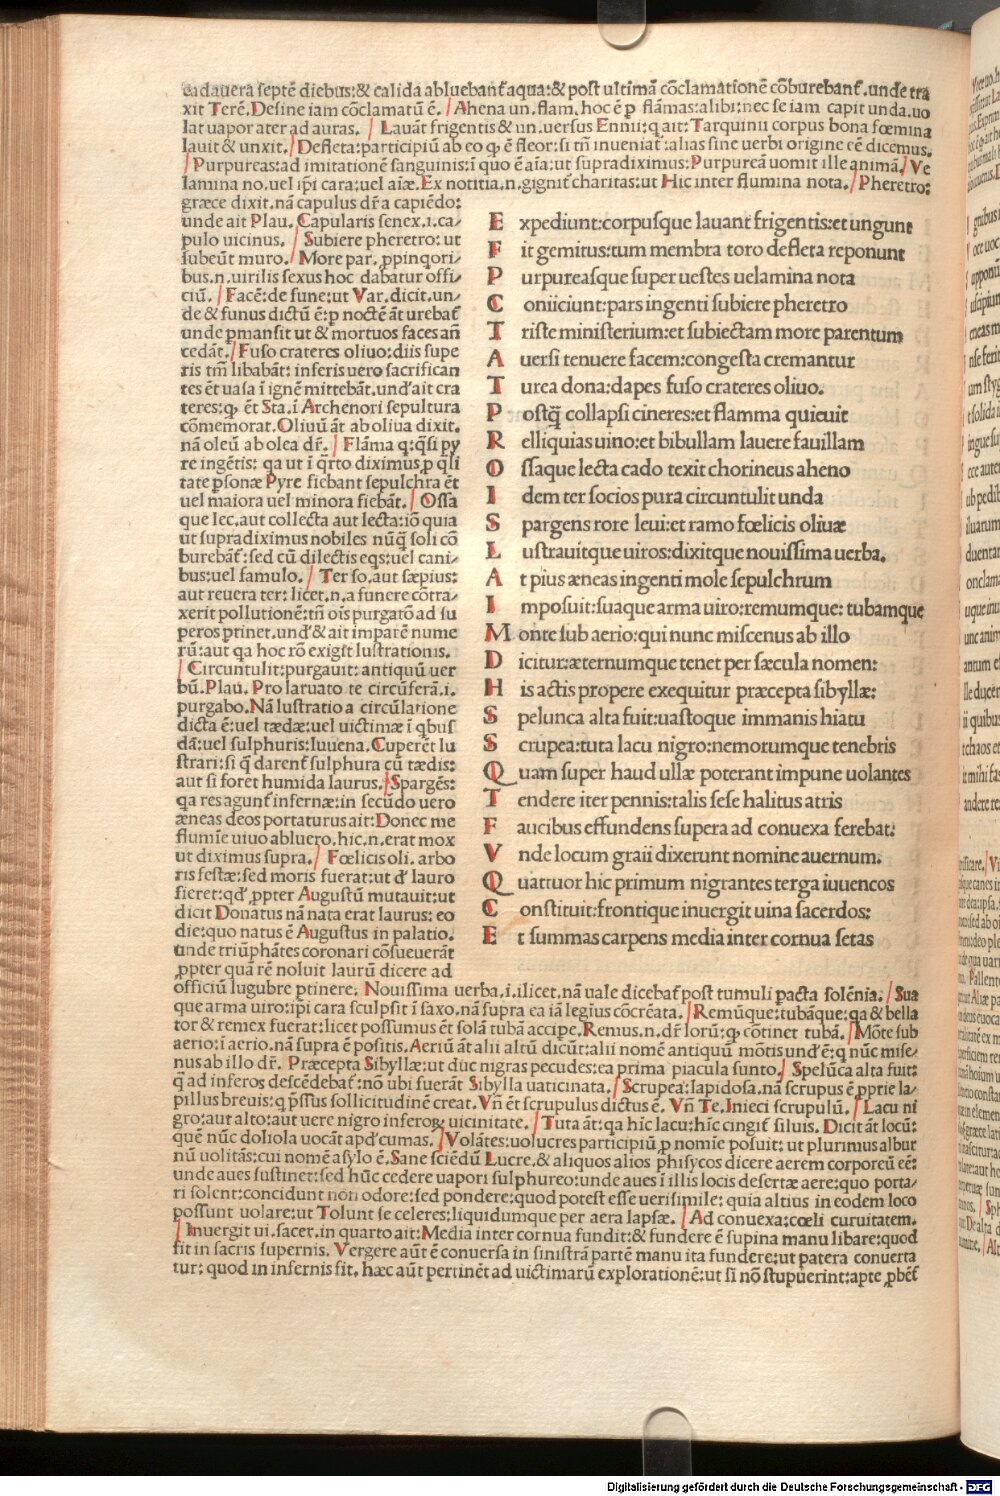 cadauera septē diebus:& calida abluebant᷑ aqua:& post ultimā cōclamationē cōburebant᷑.unde tra
xit Terē.Desine iam cōclamatū ē. / Ahena un.flam.hoc ē ꝑ flāmas:alibi:nec se iam capit unda.uo
lat uapor ater ad auras. / Lauāt frigentis & un.uersus Ennii:q ait:Tarquinii corpus bona fœmina
lauit & unxit./Defleta:participiū ab eo ꝙ ē fleor:si tñ inueniat᷑:alias sine uerbi origine eē dicemus.
/Purpureas:ad imitationē sanguinis:ī quo ē aīa:ut supradiximus:Purpureā uomit ille animā./Ve
lamina no.uel ip̄i cara:uel aiæ.Ex notitia.n.gignit᷑ charitas:ut Hic inter flumina nota./Pheretro:
græce dixit.nā capulus dr̄ a capiēdo:
unde ait Plau.Capularis senex.i.ca/
pulo uicinus. / Subiere pheretro: ut
subeūt muro./More par.ꝓpinqori/
bus.n.uirilis sexus hoc dabatur offi/
ciū. / Facē:de fune:ut Var.dicit.un/
de & funus dictū ē:ꝑ noctē āt urebat᷑
unde ꝑmansit ut & mortuos faces añ
cedāt./Fuso crateres oliuo:diis supe
ris tm̄ libabāt: inferis uero sacrifican
tes ēt uasa ī ignē mittebāt.unđ ait cra
teres:ꝙ ēt Sta.ī Archenori sepultura
cōmemorat.Oliuū āt ab oliua dixit.
nā oleū ab olea dr̄. / Flāma q:q̄si py
re ingētis: qa ut ī q̄rto diximus ꝑ q̄li
tate ꝑsonæ Pyre fiebant sepulchra ēt
uel maiora uel minora fiebāt. / Ossa
que lec.aut collecta aut lecta:iō quia
ut supradiximus nobiles nūq̄ soli cō
burebāt᷑:sed cū dilectis eqs:uel cani/
bus:uel famulo. / Ter so.aut sæpius:
aut reuera ter: licet.n.a funere cōtra/
xerit pollutionē:tn̄ ois purgatō ad su
peros ptinet.unđ & ait imparē nume
rū:aut qa hoc rō exigit lustrationis.
/ Circuntulit:purgauit: antiquū uer
bū.Plau. Pro laruato te circūferā.i.
purgabo.Nā lustratio a circūlatione
dicta ē:uel tædæ:uel uictimæ ī qbus
dā:uel sulphuris:Iuuena.Cuperēt lu
strari:si q̄ darent᷑ sulphura cū tædis:
aut si foret humida laurus./Spargēs:
qa res agunt᷑ infernæ:in secūdo uero
æneas deos portaturus ait:Donec me
flumīe uiuo abluero.hic.n.erat mox
ut diximus supra./ Fœlicis oli. arbo
ris festæ:sed moris fuerat:ut đ lauro
fieret:qđ ꝓpter Augustū mutauit:ut
dicit Donatus nā nata erat laurus: eo
die:quo natus ē Augustus in palatio.
unde triūphātes coronari cōsueuerāt
ꝓpter quā rē noluit laurū dicere ad
E xpediunt:corpusque lauant frigentis:et ungunt
F it gemitus:tum membra toro defleta reponunt
P urpureasque super uestes uelamina nota
C oniiciunt:pars ingenti subiere pheretro
T riste ministerium:et subiectam more parentum
A uersi tenuere facem:congesta cremantur
T urea dona:dapes fuso crateres oliuo.
P ostq̄ collapsi cineres:et flamma quieuit
R elliquias uino:et bibullam lauere fauillam
O ssaque lecta cado texit chorineus aheno
I dem ter socios pura circuntulit unda
S pargens rore leui:et ramo fœlicis oliuæ
L ustrauitque uiros:dixitque nouissima uerba.
A t pius æneas ingenti mole sepulchrum
I mposuit:suaque arma uiro:remumque: tubamque
M onte sub aerio:qui nunc miscenus ab illo
D icitur:æternumque tenet per sæcula nomen:
H is actis propere exequitur præcepta sibyllæ:
S pelunca alta fuit:uastoque immanis hiatu
S crupea:tuta lacu nigro:nemorumque tenebris
Q uam super haud ullæ poterant impune uolantes
T endere iter pennis:talis sese halitus atris
F aucibus effundens supera ad conuexa ferebat:
V nde locum graii dixerunt nomine auernum.
Q uattuor hic primum nigrantes terga iuuencos
C onstituit:frontique inuergit uina sacerdos:
E t summas carpens media inter cornua setas
officiū lugubre ptinere. Nouissima uerba.i.ilicet.nā uale dicebat᷑ post tumuli pacta solēnia./Sua
que arma uiro:ip̄i cara sculpsit ī saxo.nā supra ea iā legius cōcrēata./Remūque:tubāque:qa & bella
tor & remex fuerat:licet possumus ēt solā tubā accipe.Remus.n.dr̄ lorū:ꝙ cōtinet tubā. /Mōte sub
aerio:i aerio.nā supra ē positis.Aeriū āt alii altū dicūt:alii nomē antiquū mōtis unđ ē:ꝙ nūc mise/
nus ab illo dr̄. Præcepta Sibyllæ:ut duc nigras pecudes:ea prima piacula sunto./ Spelūca alta fuit:
q̄ ad inferos descēdebat᷑:nō ubi fuerāt Sibylla uaticinata. /Scrupea:lapidosa.nā scrupus ē ꝓprie la/
pillus breuis:q p̄ssus sollicitudinē creat.Vn̄ ēt scrupulus dictus ē. Vn̄ Te.Inieci scrupulū./ Lacu ni
gro:aut alto:aut uere nigro inferoꝝ uicinitate. /Tuta āt:qa hic lacu:hīc cingit᷑ siluis.Dicit āt locū:
quē nūc doliola uocāt apđ cumas. /Volātes:uolucres participiū ꝓ nomīe posuit: ut plurimus albur
nū uolitās:cui nomē asylo ē.Sane sciēdū Lucre.& aliquos alios phisycos dicere aerem corporeū eē:
unde aues sustinet:sed hūc cedere uapori sulphureo:unde aues ī illis locis desertæ aere:quo porta/
ri solent:concidunt non odore:sed pondere:quod potest esse uerisimile: quia altius in eodem loco
possunt uolare:ut Tolunt se celeres:liquidumque per aera lapsæ. /Ad conuexa:cœli curuitatem.
/Inuergit ui.sacer.in quarto ait:Media inter cornua fundit:& fundere ē supina manu libare:quod
fit in sacris supernis. Vergere aūt ē conuersa in sinistrā partē manu ita fundere:ut patera conuerta
tur: quod in infernis fit. hæc aūt pertinēt ad uictimarū explorationē:ut si nō stupuerint:apte ꝓbēt᷑
Digitalisierung gefördert durch die Deutsche Forschungsgemeinschaft - DFG